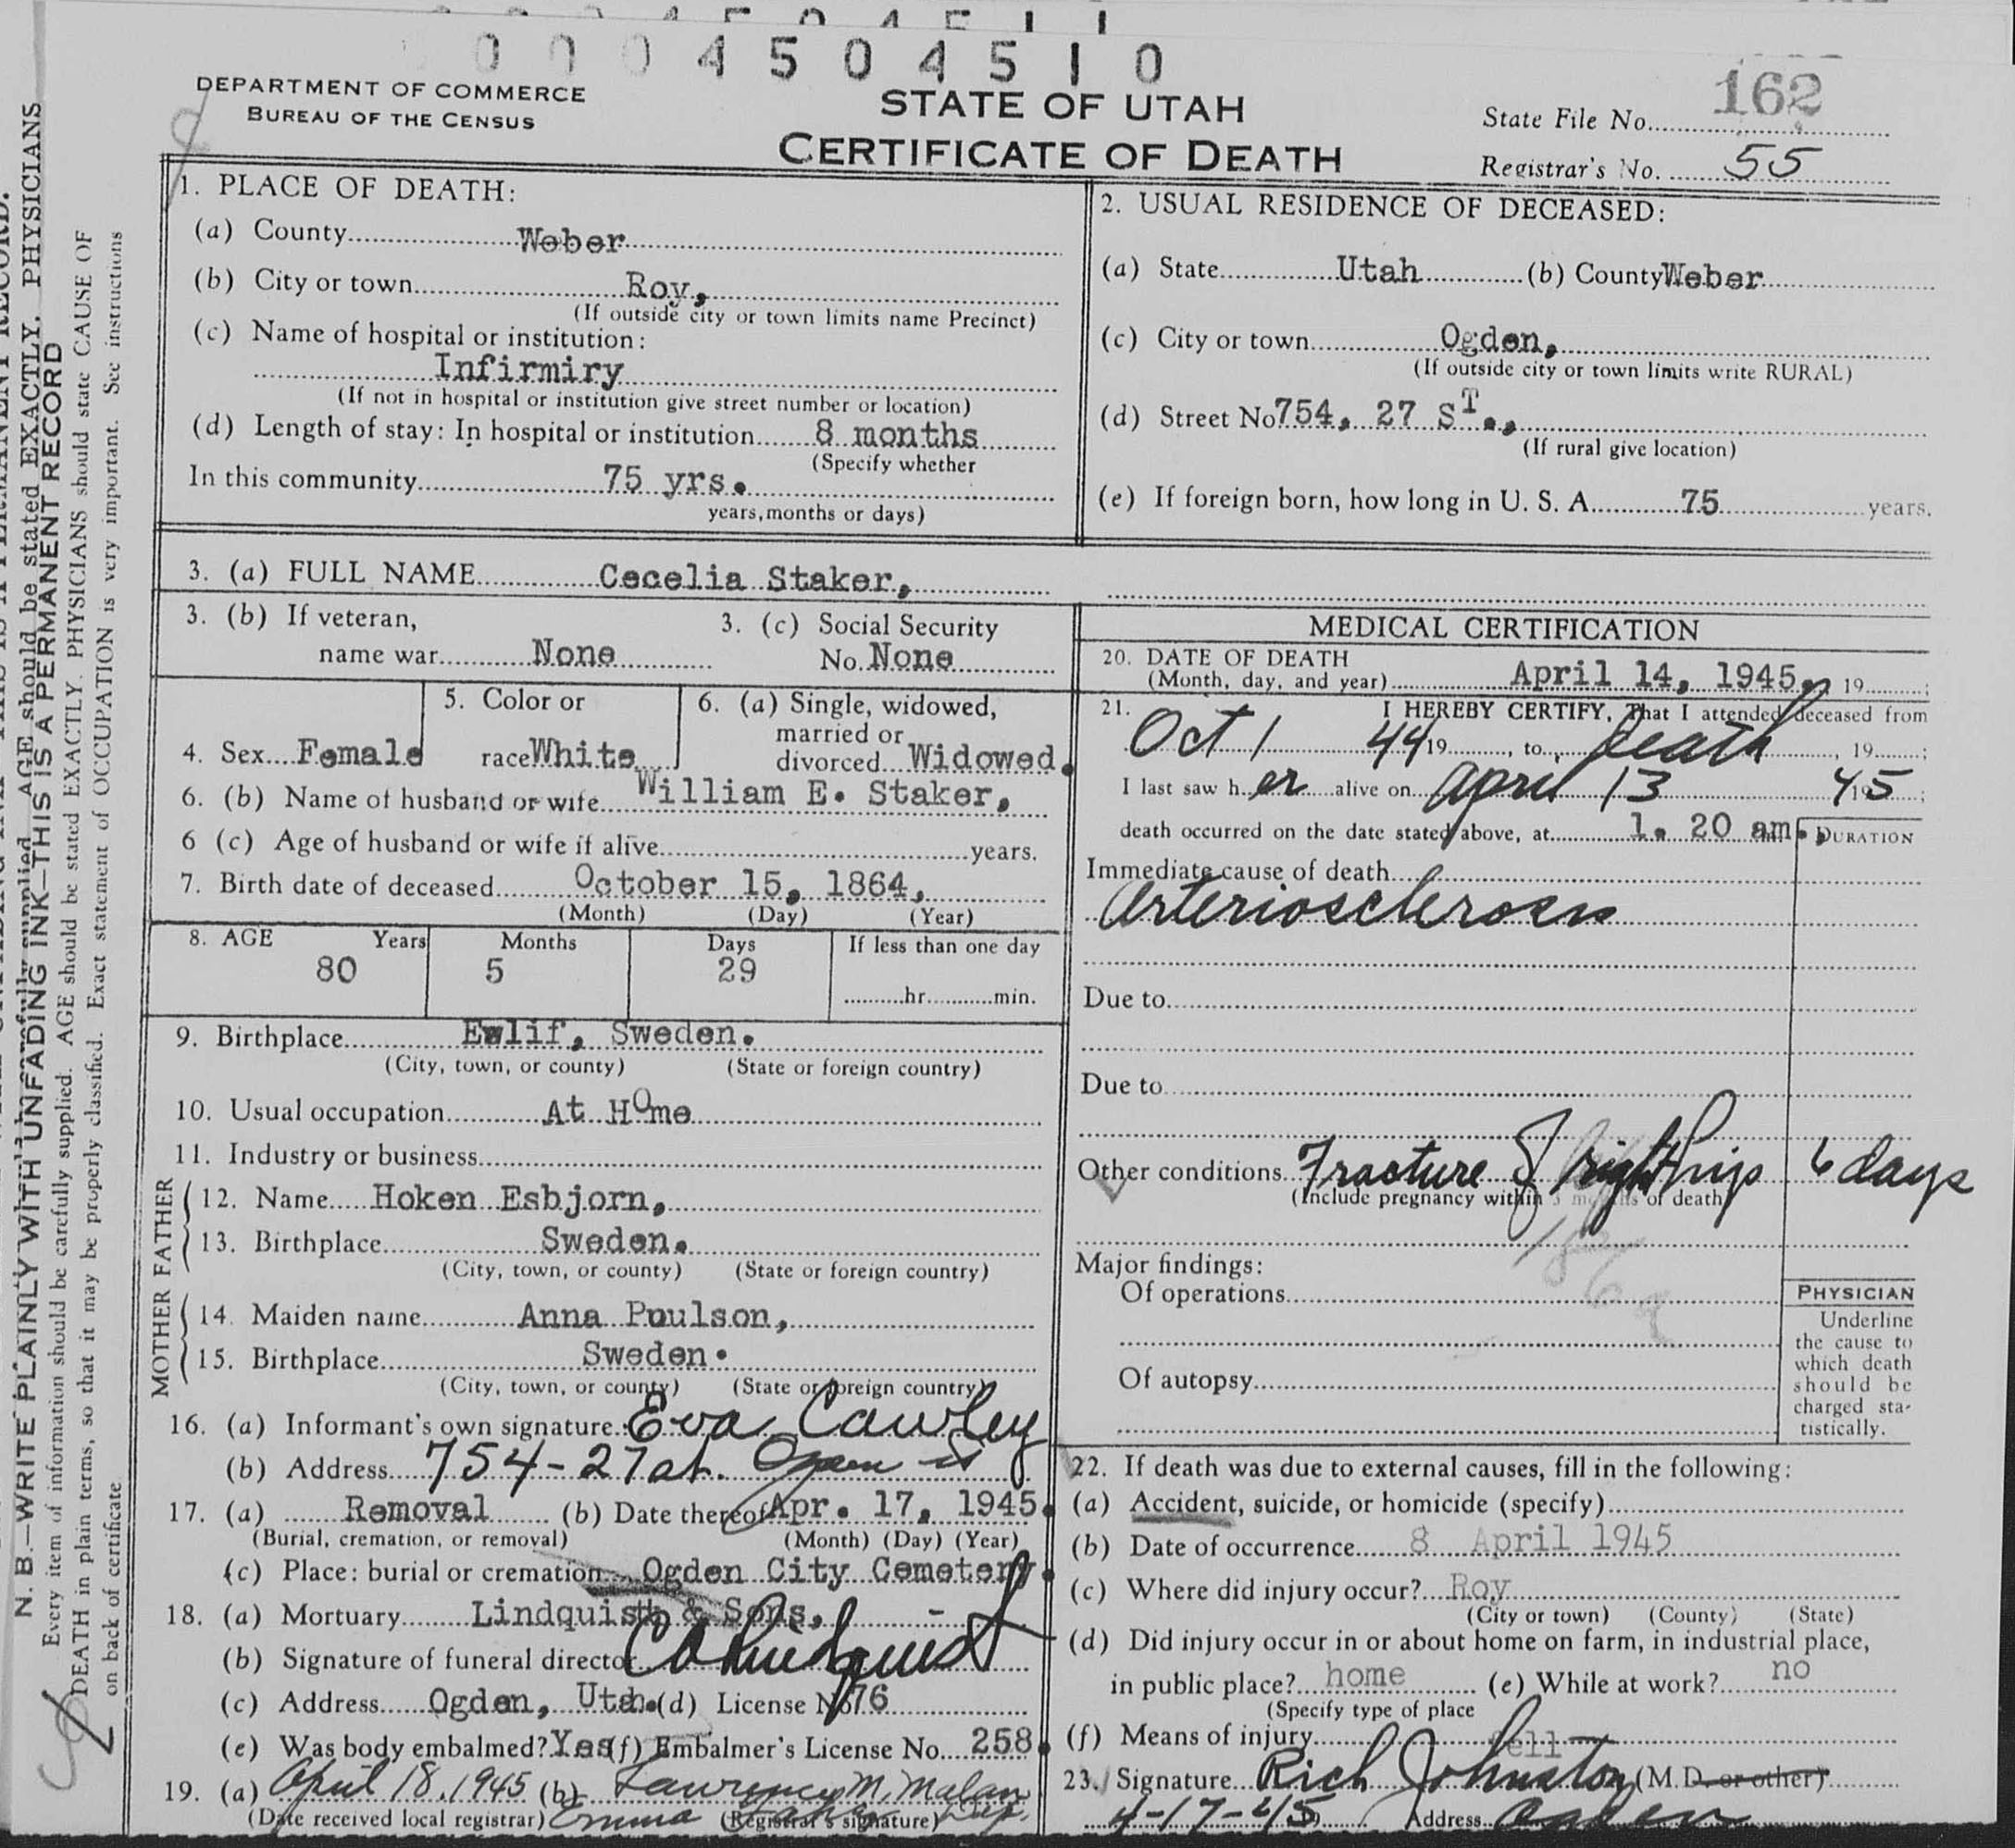 0 0 0 4 5 0 4 5 1 0
DEPARTMENT OF COMMERCE
BUREAU OF THE CENSUS
STATE OF UTAH
CERTIFICATE OF DEATH
State File No. 162
Registrar's No. 55
1. PLACE OF DEATH:
(a) County Weber
(b) City or town Roy,
(If outside city or town limits name Precinct)
(c) Name of hospital or institution:
Infirmiry
(If not in hospital or institution give street number or location)
(d) Length of stay: In hospital or institution 8 months
(Specify whether
In this community 75 yrs.
years, months or days)
2. USUAL RESIDENCE OF DECEASED:
(a) State Utah (b) County Weber
(c) City or town Ogden,
(If outside city or town limits write RURAL)
(d) Street No 754, 27 ST.,
(If rural give location)
(e) If foreign born, how long in U. S. A. 75 years.
3. (a) FULL NAME Cecelia Staker,
3. (b) If veteran,
name war None
3. (c) Social Security
No. None
4. Sex Female
5. Color or
race White
6. (a) Single, widowed,
married or
divorced Widowed.
6. (b) Name of husband or wife William E. Staker,
6 (c) Age of husband or wife if alive years.
7. Birth date of deceased October 15, 1864,
(Month) (Day) (Year)
8. AGE Years Months Days If less than one day
80 5 29 hr. min.
9. Birthplace Ewlif, Sweden.
(City, town, or county) (State or foreign country)
10. Usual occupation At HOme
11. Industry or business
FATHER
12. Name Hoken Esbjorn,
13. Birthplace Sweden.
(City, town, or county) (State or foreign country)
MOTHER
14. Maiden name Anna Poulson,
15. Birthplace Sweden.
(City, town, or county) (State or foreign country)
16. (a) Informant's own signature Eva Cawley
(b) Address 754-27 st. Ogden
17. (a) Removal (b) Date thereof Apr. 17, 1945.
(Burial, cremation, or removal) (Month) (Day) (Year)
(c) Place: burial or cremation Ogden City Cemetery.
18. (a) Mortuary Lindquist & Sons,
(b) Signature of funeral director Lindquist
(c) Address Ogden, Utah. (d) License No 76
(e) Was body embalmed? Yes (f) Embalmer's License No. 258.
19. (a) April 18, 1945 (b) Lawrence M. Malan
(Date received local registrar) Emma (Registrar's signature) Dep.
MEDICAL CERTIFICATION
20. DATE OF DEATH
(Month, day, and year) April 14, 1945. 19 ;
21. I HEREBY CERTIFY, That I attended deceased from
Oct 1 44 19 , to death , 19 ;
I last saw her alive on April 13 45 19 ;
death occurred on the date stated above, at 1. 20 am.
DURATION
Immediate cause of death
Arteriosclerosis
Due to
Due to
Other conditions Fracture of right hip 6 days
(Include pregnancy within 3 months of death)
Major findings:
Of operations
Of autopsy
PHYSICIAN
Underline
the cause to
which death
should be
charged sta-
tistically.
22. If death was due to external causes, fill in the following:
(a) Accident, suicide, or homicide (specify)
(b) Date of occurrence 8 April 1945
(c) Where did injury occur? Roy
(City or town) (County) (State)
(d) Did injury occur in or about home on farm, in industrial place,
in public place? home (e) While at work? no
(Specify type of place
(f) Means of injury fell
23. Signature Rich Johnston (M.D. or other)
4-17-45 Address Ogden
N. B.—WRITE PLAINLY WITH UNFADING INK—THIS IS A PERMANENT RECORD
Every item of information should be carefully supplied. AGE should be stated EXACTLY. PHYSICIANS should state CAUSE OF
DEATH in plain terms, so that it may be properly classified. Exact statement of OCCUPATION is very important. See instructions
on back of certificate